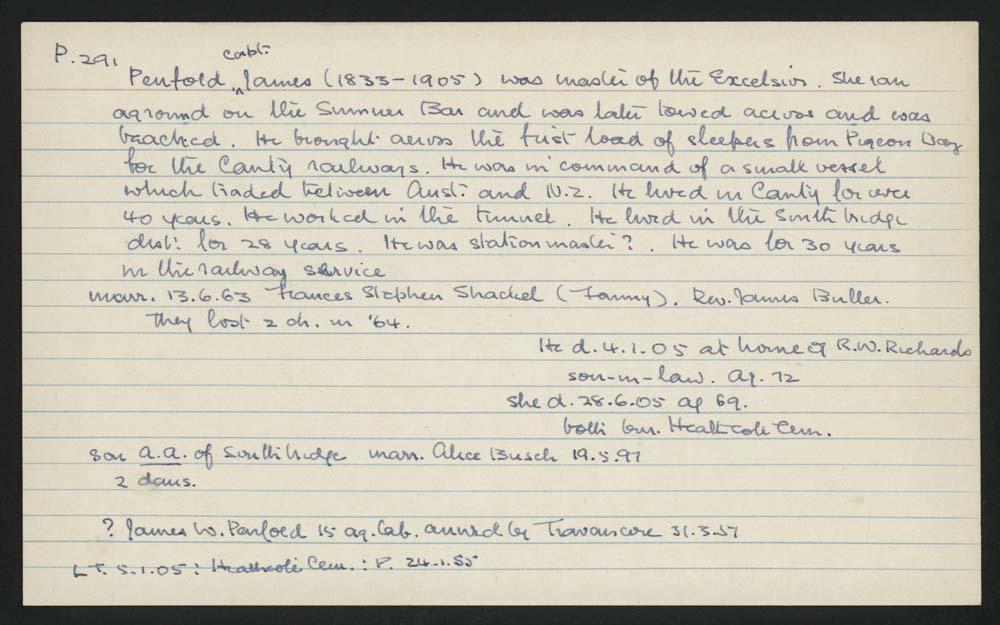 P.291
capt:
Penfold, James (1833-1905) was master of the Excelsior. She ran
aground on the Sumner Bar and was later towed across and was
beached. He brought across the first load of sleepers from Pigeon Bay
for the Canty railways. He was in command of a small vessel
which traded between Aust: and N.Z. He lived in Canty for over
40 years. He worked in the tunnel. He lived in the Southbridge
dist: for 28 years. He was stationmaster?. He was for 30 years
in the railway service
marr. 13.6.63 Frances Stephen Shackel (Fanny). Rev. James Buller.
They lost 2 ch. in '64.
He d. 4.1.05 at home of R.W. Richards
son-in-law. Ag. 72
She d. 28.6.05 ag 69.
both bur. Heathcote Cem.
son A.A. of Southbridge marr. Alice Busch 19.5.97
2 daus.
? James W. Penfold 15 ag. lab. arrived by Travancore 31.3.51
LT. 5.1.05: Heathcote Cem.: P. 24.1.55